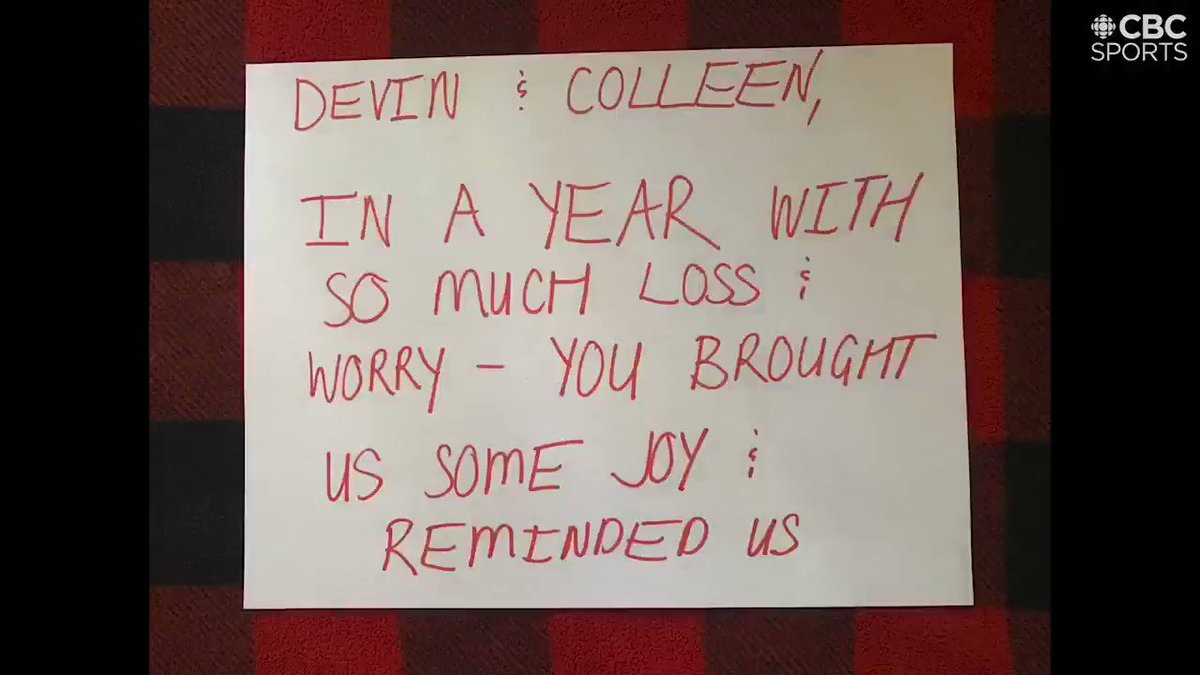 CBC
SPORTS
DEVIN & COLLEEN,
IN A YEAR WITH
SO MUCH LOSS &
WORRY - YOU BROUGHT
US SOME JOY &
REMINDED US